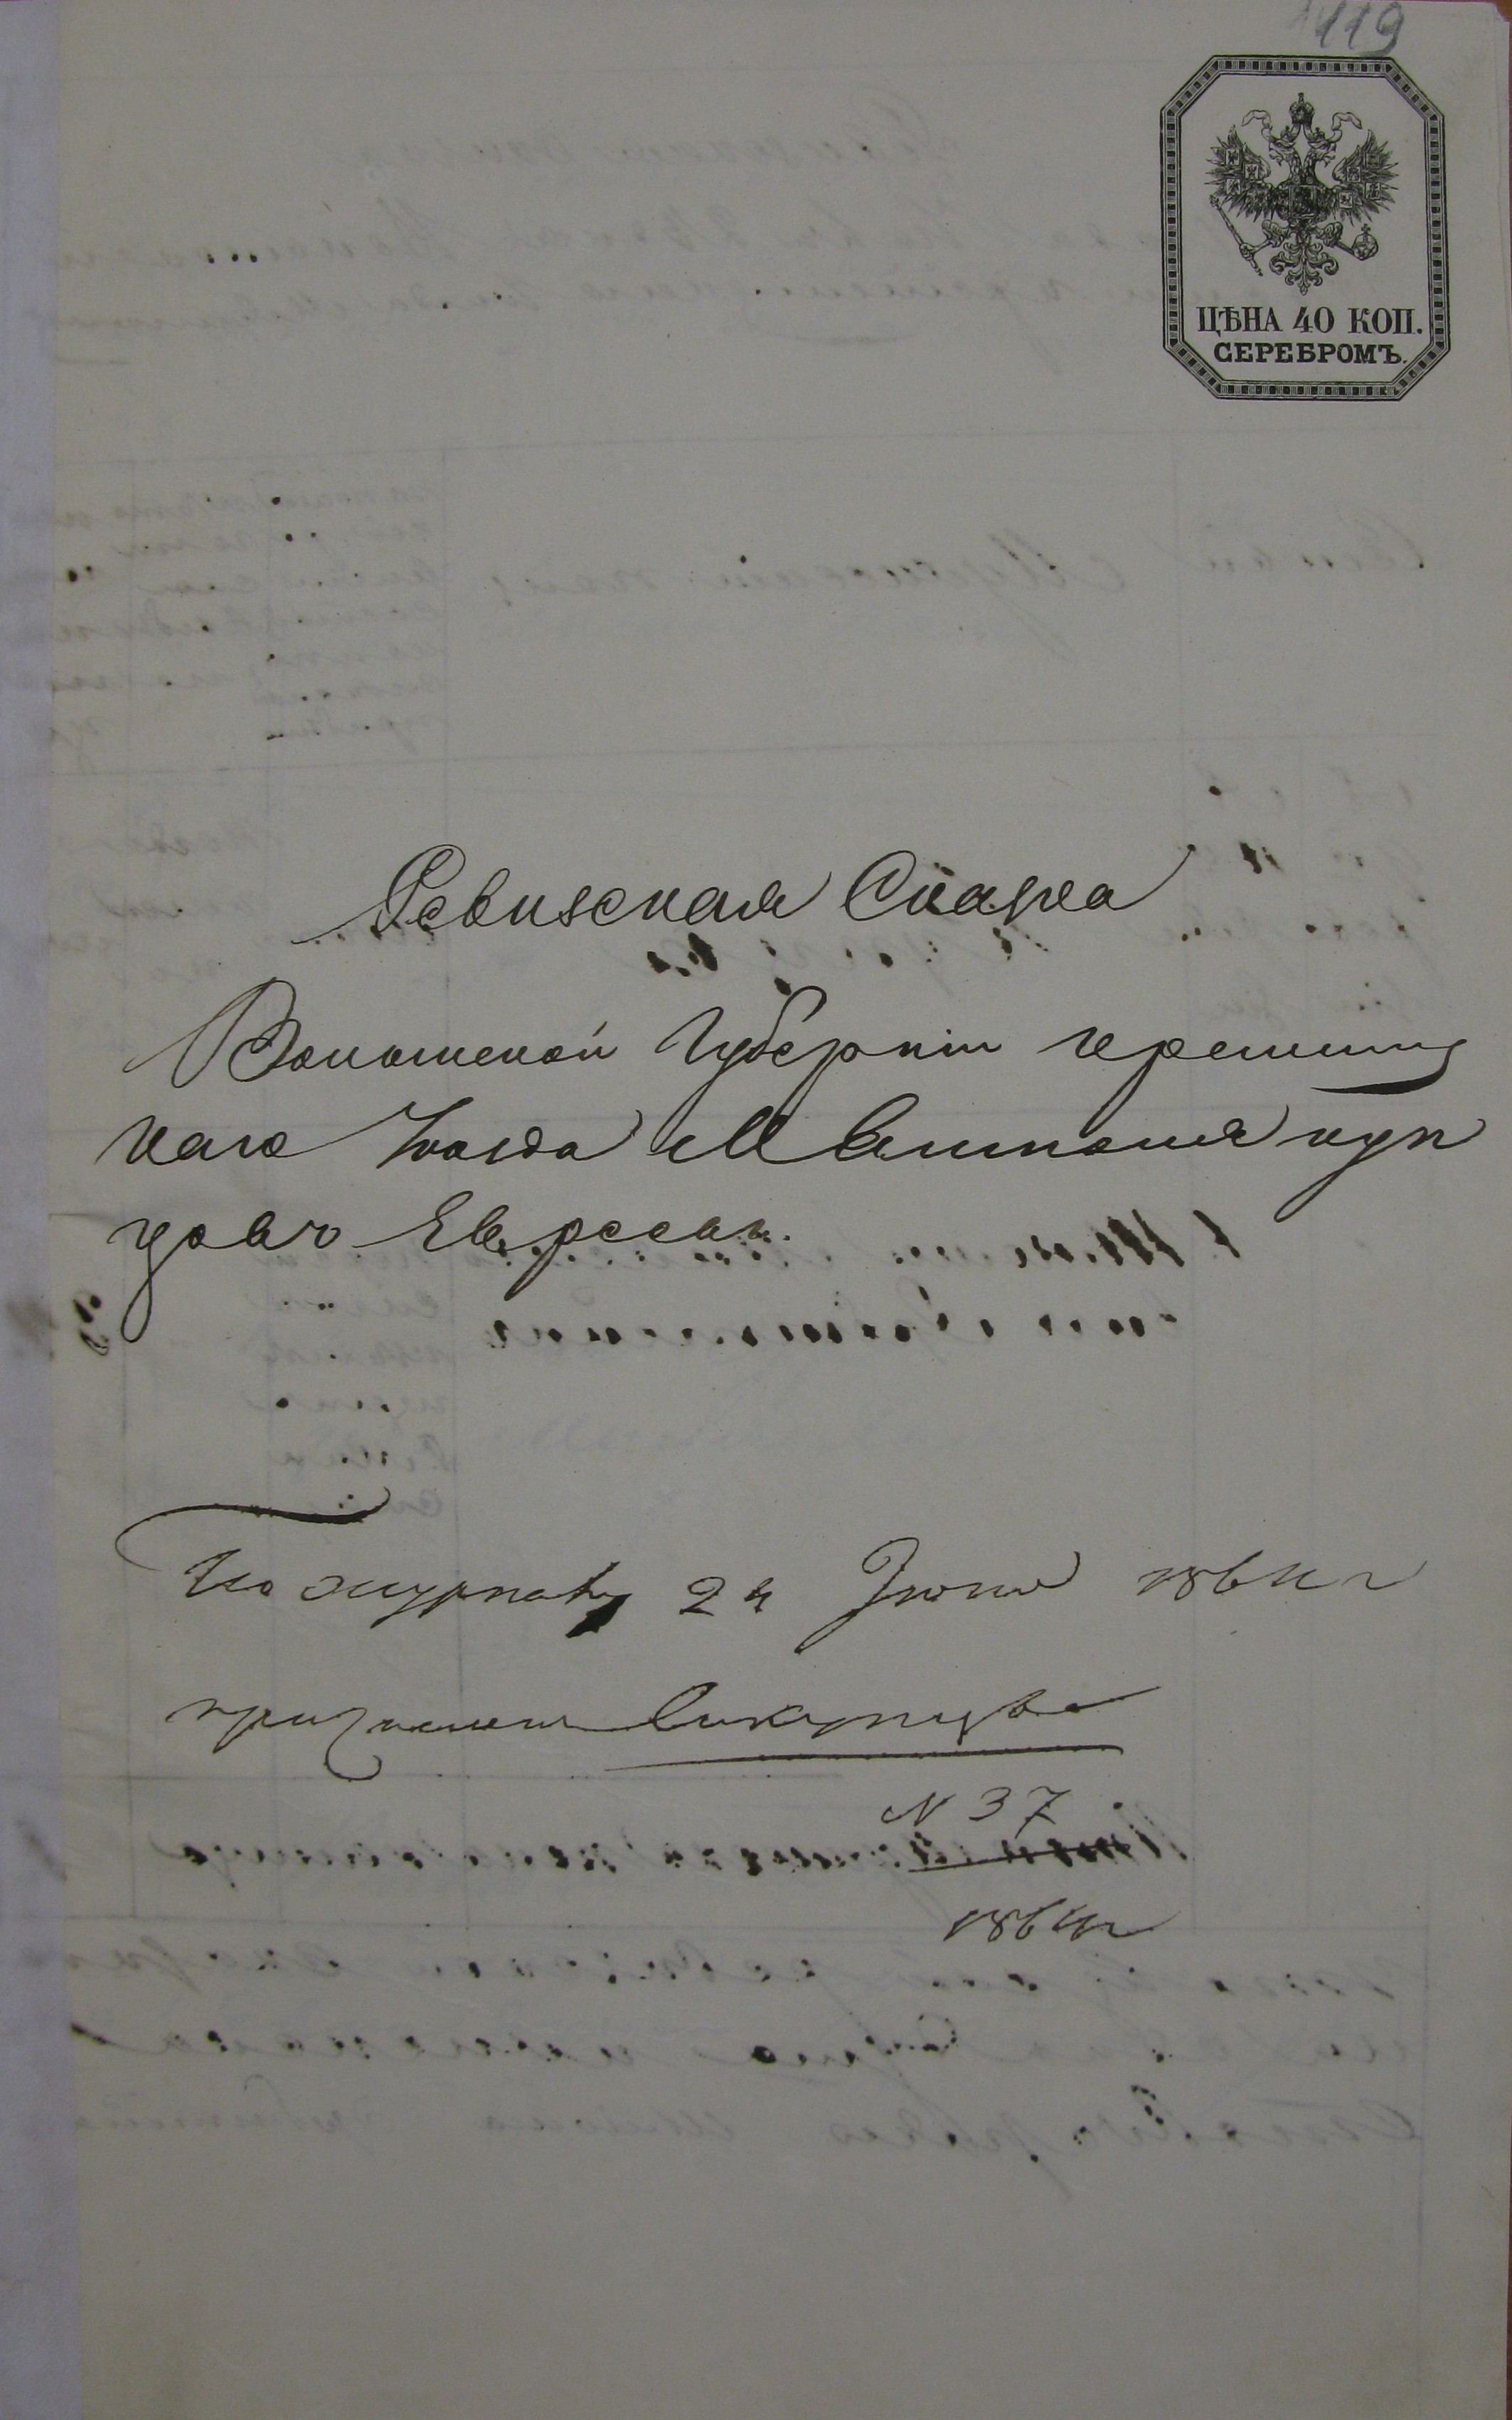 119
ЦѢНА 40 КОП.
СЕРЕБРОМЪ.
Ревизская Скаска
Волынской Губерніи Кременец
каго Уезда М куп
цовъ Евреевъ.
По журналу 24 Іюня 1864 г
причислен
N 37
1864 г